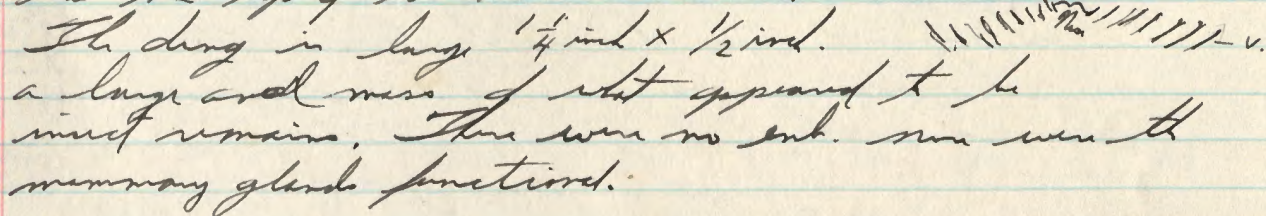 The dung is large 1 1/4 inch x 1/2 inch.
a large and mass of what appeared to be
insect remains. There were no emb. nor were the
mammary glands functional.